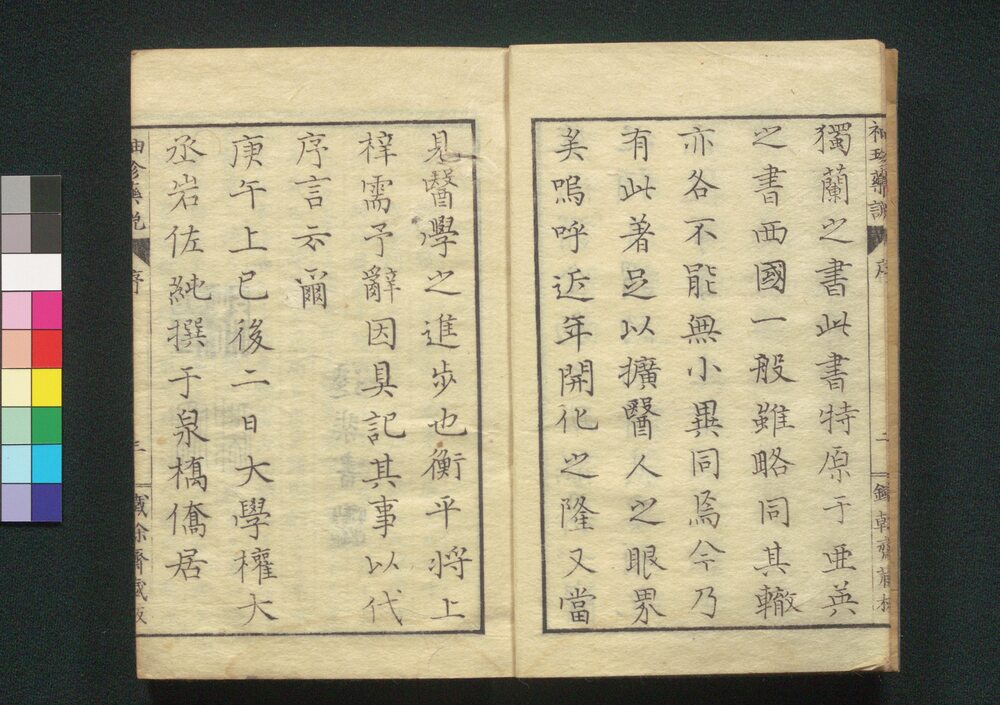 獨蘭之書此書特原于亜英
之書西國一般雖略同其轍
亦各不能無小異同焉今乃
有此著足以擴醫人之眼界
矣嗚呼近年開化之隆又當
見醫學之進歩也衡平将上
梓需予辭因具記其事以代
序言云爾
庚午上巳後二日大學權大
丞岩佐純撰于泉橋僑居
袖珍藥説
序
二
袖珍藥説
序
三